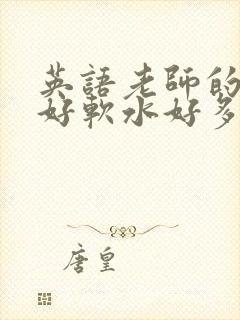 英語老師的
好軟水好多
唐皇